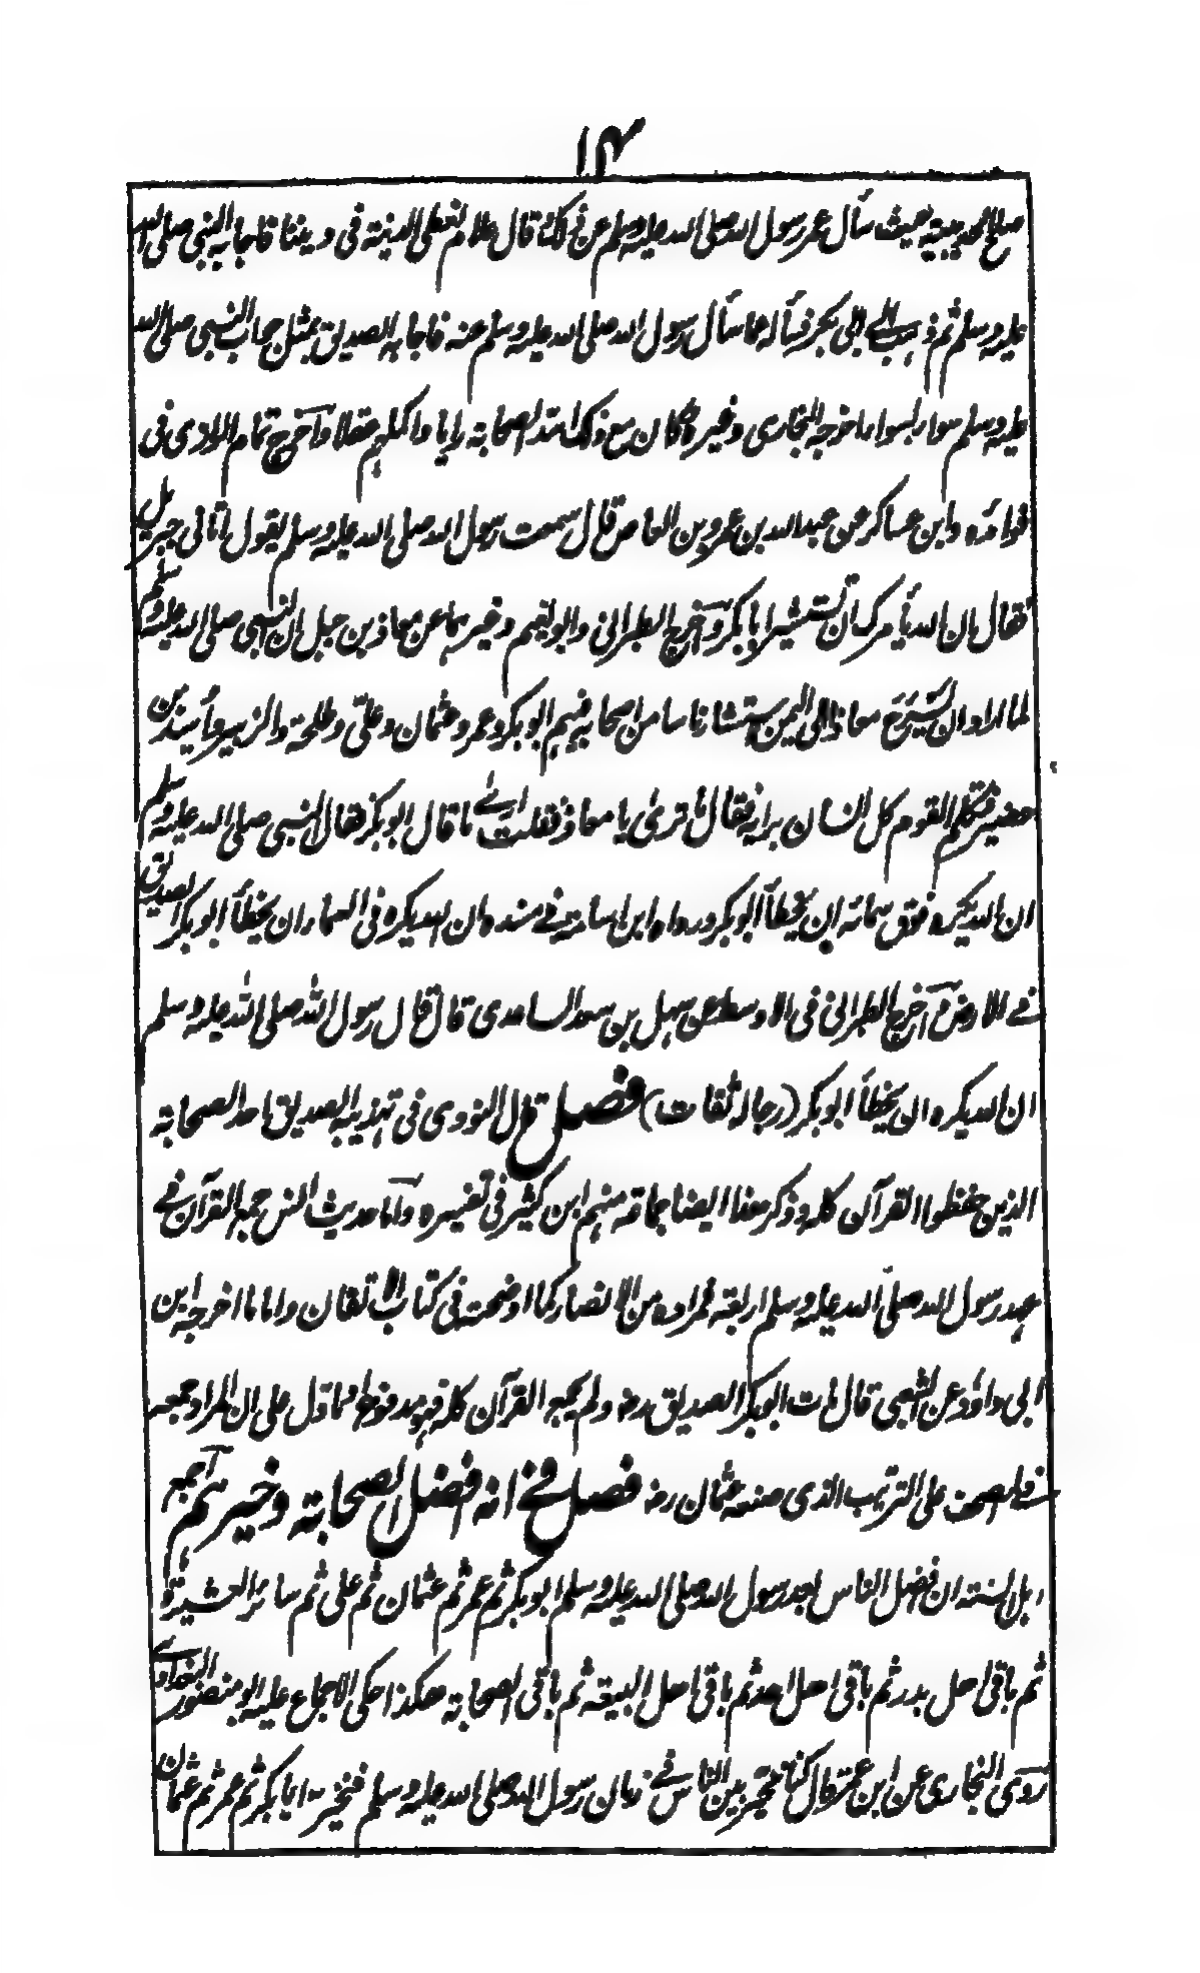 ١٤
صلح الحديبية حيث سأل عمر رسول الله صلى الله عليه وسلم عن ذلك وقال علام نعطى الدنية فى ديننا فاجابه النبى صلى الله
عليه وسلم ثم ذهب الى ابى بكر فسأله عما سأل رسول الله صلى الله عليه وسلم عنه فاجابه الصديق بمثل جواب النبى صلى الله
عليه وسلم سواء بسواء اخرجه البخارى وغيره وكان مع ذلك اسد الصحابة رايا واكملهم عقلا واخرج تمام الرازى فى
فوائده وابن عساكر عن عبد الله بن عمرو بن العاص قال سمعت رسول الله صلى الله عليه وسلم يقول اتانى جبريل
فقال ان الله يأمرك ان تستشير ابا بكر واخرج الطبرانى وابو نعيم وغيرهما عن معاذ بن جبل ان النبى صلى الله عليه وسلم
لما اراد ان يسرح معاذا الى اليمن استشار ناسا من اصحابه فيهم ابو بكر وعمر وعثمان وعلى وطلحة والزبير واسيد بن
حضير فتكلم القوم كل انسان برايه فقال ما ترى يا معاذ فقلت ارى ما قال ابو بكر فقال النبى صلى الله عليه وسلم
ان الله يكره فوق سمائه ان يخطأ ابو بكر ورواه ابن اسامة فى مسنده ان الله يكره فى السماء ان يخطأ ابو بكر الصديق
فى الارض واخرج الطبرانى فى الاوسط عن سهل بن سعد الساعدى قال قال رسول الله صلى الله عليه وسلم
ان الله يكره ان يخطأ ابو بكر (رجاله ثقات) فصل قال النووى فى تهذيبه الصديق احد الصحابة
الذين حفظوا القرآن كله وذكر هذا ايضا جماعة منهم ابن كثير فى تفسيره واما حديث انس جمع القرآن فى
عهد رسول الله صلى الله عليه وسلم اربعة فمراده من الانصار كما اوضحته فى كتاب الاتقان واما ما اخرجه ابن
ابى داود عن الشعبى قال مات ابو بكر الصديق رضـ ولم يجمع القرآن كله فهو مدفوع او مأول على ان المراد جمعه
فى المصحف على الترتيب الذى صنعه عثمان رضـ فصل فى انه افضل الصحابة وخيرهم اجمع
اهل السنة ان افضل الناس بعد رسول الله صلى الله عليه وسلم ابو بكر ثم عمر ثم عثمان ثم على ثم سائر العشرة
ثم باقى اهل بدر ثم باقى اهل احد ثم باقى اهل البيعة ثم باقى الصحابة هكذا حكى الاجماع عليه ابو منصور البغدادى
روى البخارى عن ابن عمر قال كنا نخير بين الناس فى زمان رسول الله صلى الله عليه وسلم فنخير ابا بكر ثم عمر ثم عثمان